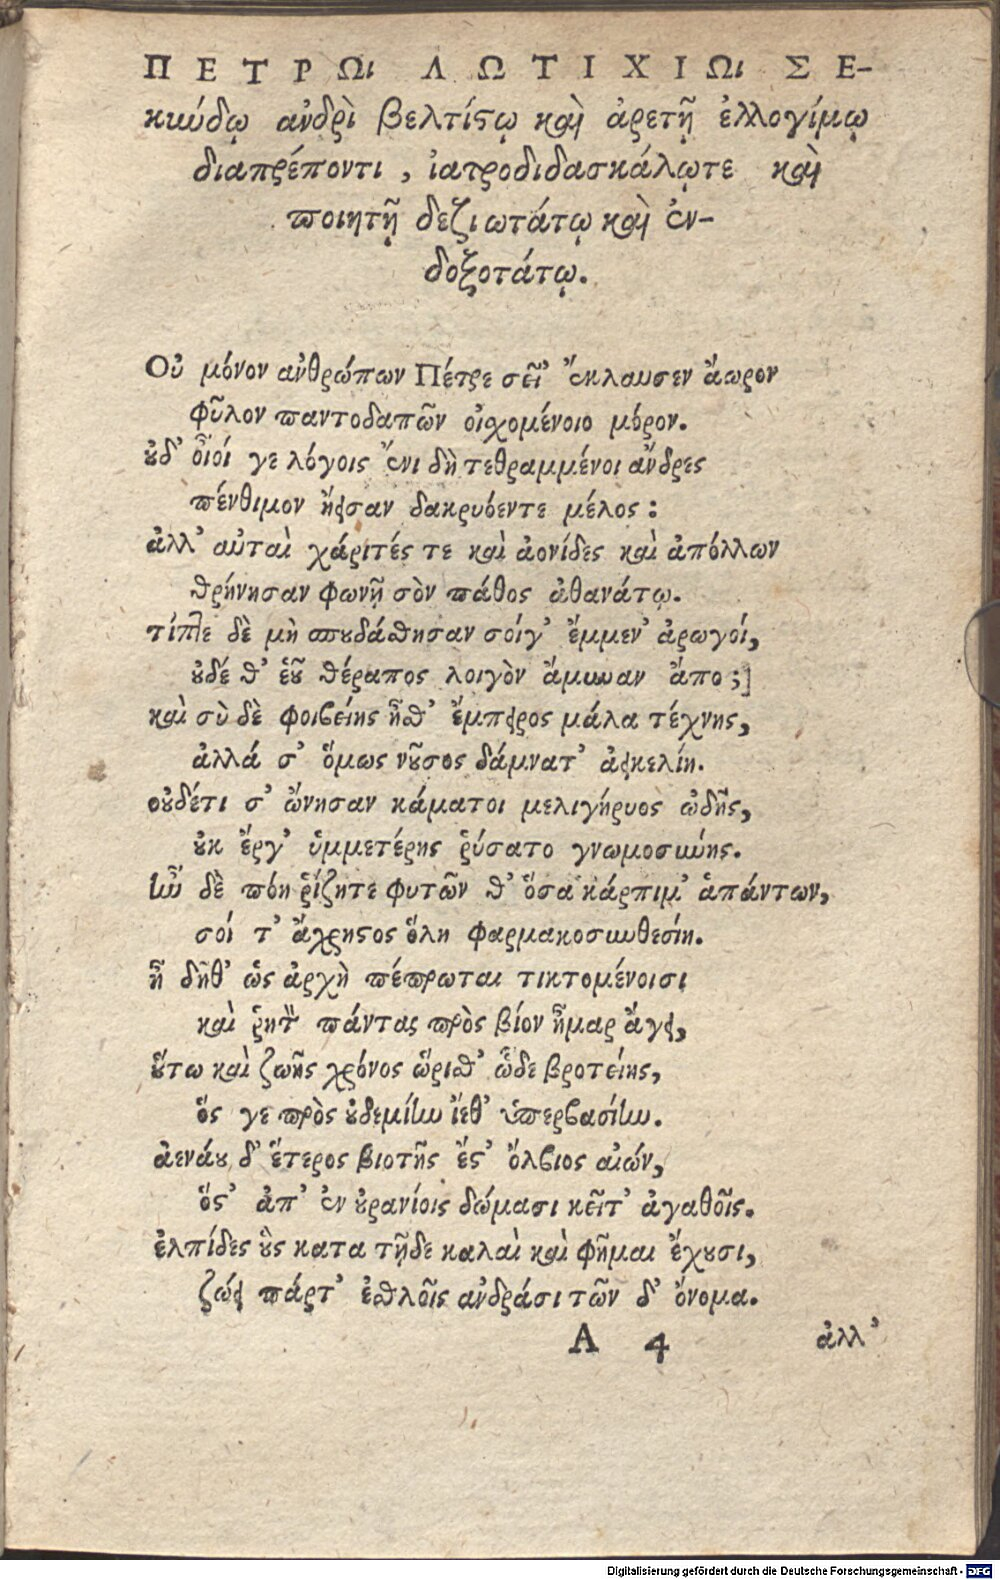 ΠΕΤΡΩι ΛΩΤΙΧΙΩι ΣΕ-
κούδῳ ἀνδρὶ βελτίστῳ καὶ ἀρετῇ ἐλλογίμῳ
διαπρέποντι, ἰατροδιδασκάλῳτε καὶ
ποιητῇ δεξιωτάτῳ καὶ ἐν-
δοξοτάτῳ.
Οὐ μόνον ἀνθρώπων Πέτρε σεῖ' ἔκλαυσεν ἄωρον
φῦλον παντοδαπῶν οἰχομένοιο μόρον.
οὐδ' οἷοί γε λόγοις ἔνι δὴ τεθραμμένοι ἄνδρες
πένθιμον ᾔεισαν δακρυόεντε μέλος:
ἀλλ' αὐταὶ χάριτές τε καὶ ἀονίδες καὶ ἀπόλλων
θρήνησαν φωνῇ σὸν πάθος ἀθανάτῳ.
τίπτε δὲ μὴ σπουδάσθησαν σοίγ' ἔμμεν' ἀρωγοί,
οὐδέ θ' ἑοῦ θέραπος λοιγὸν ἄμυναν ἄπο;]
καὶ σὺ δὲ φοιβείης ἦσθ' ἔμπειρος μάλα τέχνης,
ἀλλά σ' ὅμως νοῦσος δάμνατ' ἀεικελίη.
οὐδέτι σ' ὤνησαν κάματοι μελιγήρυος ᾠδῆς,
οὐκ ἔργ' ὑμμετέρης ῥύσατο γνωμοσύνης.
ἦν δὲ πόη ῥίζητε φυτῶν θ' ὅσα κάρπιμ' ἁπάντων,
σοί τ' ἄχρηστος ὅλη φαρμακοσυνθεσίη.
ἦ δῆθ' ὡς ἀρχὴ πέπρωται τικτομένοισι
καὶ ῥητὸν πάντας πρὸς βίον ἦμαρ ἄγει,
οὕτω καὶ ζωῆς χρόνος ὥρισθ' ὧδε βροτείης,
ὅς γε πρὸς οὐδεμίην ἵεθ' ὑπερβασίην.
ἀενάου δ' ἕτερος βιοτῆς ἔστ' ὄλβιος αἰών,
ὅστ' ἀπ' ἐν οὐρανίοις δώμασι κεῖτ' ἀγαθοῖς.
ἐλπίδες οὓς κατα τῇδε καλαὶ καὶ φῆμαι ἔχουσι,
ζώει πάρτ' ἐσθλοῖς ἀνδράσι τῶν δ' ὄνομα.
A 4 ἀλλ'
Digitalisierung gefördert durch die Deutsche Forschungsgemeinschaft - DFG